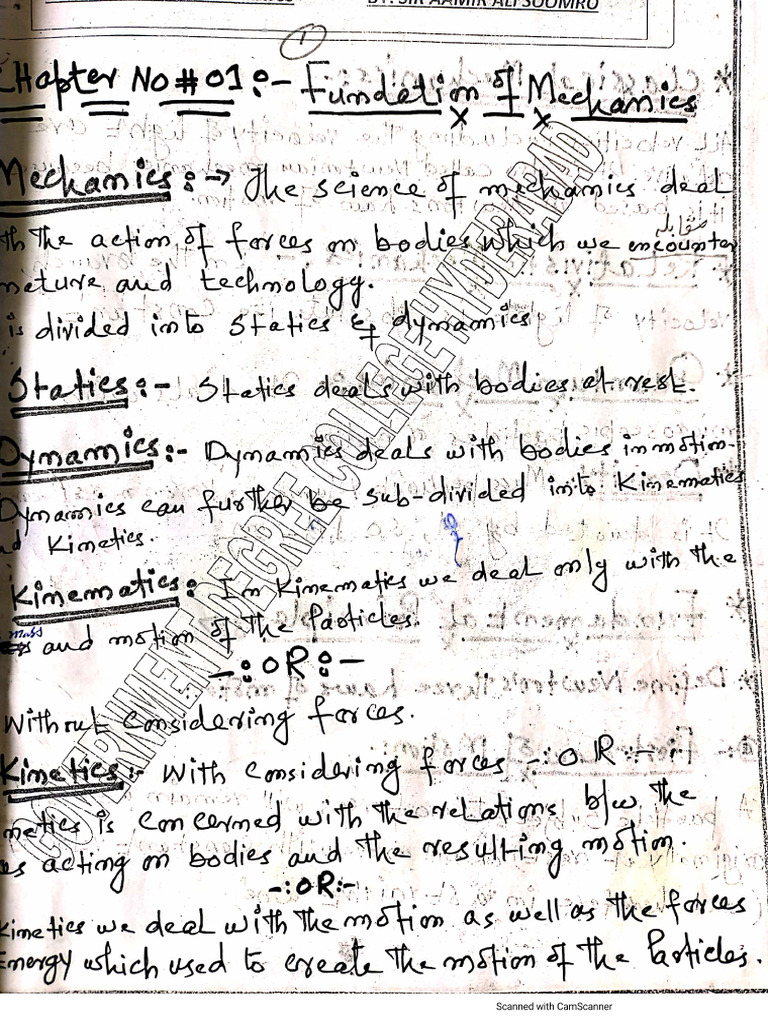 BY: SIR AAMIR ALI SOOMRO
1
Chapter No # 01:- Fundation of Mechanics
Mechanics:→ The science of mechanics deal
th the action of forces on bodies which we encounter
nature and technology.
is divided into Statics & dynamics
Statics:- Statics deals with bodies at rest.
Dynamics:- Dynamics deals with bodies in motion-
Dynamics can further be sub-divided into Kinematics
nd Kinetics.
Kinematics: In Kinematics we deal only with the
mass and motion of the Particles.
-:OR:-
Without Considering forces.
Kinetics:- With Considering forces -:OR:-
netics is concerned with the relations b/w the
es acting on bodies and the resulting motion.
-:OR:-
Kinetics we deal with the motion as well as the forces
Energy which used to create the motion of the Particles.
GOVERNMENT DEGREE COLLEGE HYDERABAD
Scanned with CamScanner